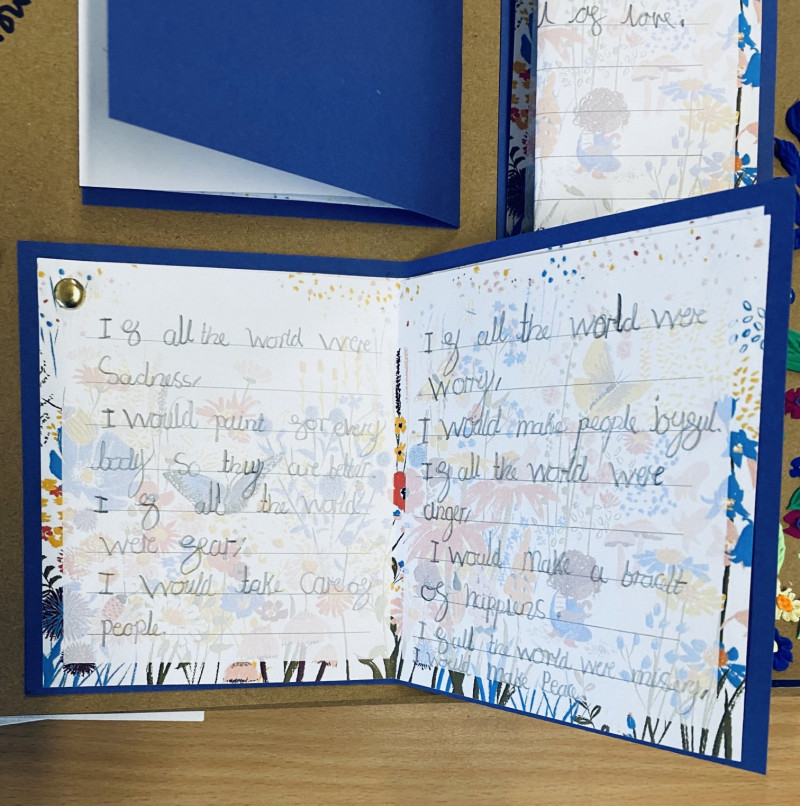 l of love.
If all the world were
Sadness,
I would paint for every
body so they are better.
I If all the world
were fear,
I would take care of
people.
If all the world were
worry,
I would make people joyful.
If all the world were
anger,
I would make a
of happiens.
If all the world were misery,
I would make peace.